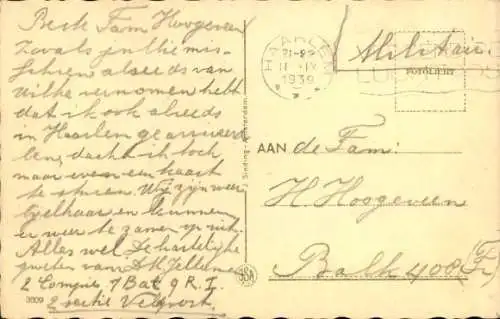 Beste Fam Hoogeveen
Zooals jullie mis-
schien alreeds van
Wilke vernomen hebt
dat ik ook alreeds
in Haarlem gearriveerd
ben, dacht ik toch
maar even een kaart
te sturen. Wij zijn weer
bij elkaar en kunnen
er weer te zamen op uit.
Alles wel. De hartelijke
groeten van D.H. Jellema
2 Compie 1 Bat 9 R.I.
2 sectie Veldpost
3809
HAARLEM
11 IX
1939
Militair
FOTOLICHT
Sinding-Amsterdam.
AAN de Fam:
H. Hoogeveen
Balk 408 (Fr)